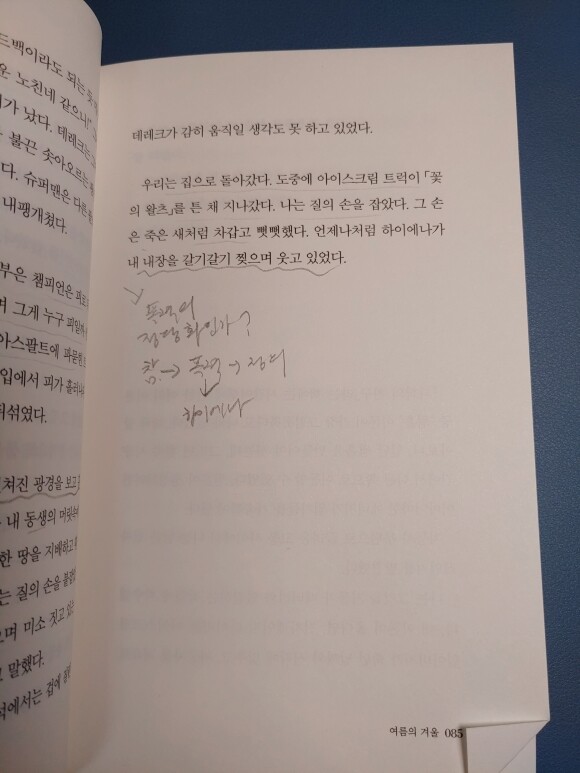 드백이라도 되는 듯
운 노친네 같으니!"
가 났다. 데레크는
불끈 솟아오르는
다. 슈퍼맨은 다른
내팽개쳤다.
부은 챔피언은 피로
며 그게 누구 피일까
아스팔트에 파묻힌
입에서 피가 흘러
뒤섞였다.
쳐진 광경을 보고
내 동생의 머릿속
한 땅을 지배하고
는 질의 손을 붙잡
으며 미소 짓고 있
고 말했다.
석에서는 겁에
데레크가 감히 움직일 생각도 못 하고 있었다.
우리는 집으로 돌아갔다. 도중에 아이스크림 트럭이 「꽃
의 왈츠」를 튼 채 지나갔다. 나는 질의 손을 잡았다. 그 손
은 죽은 새처럼 차갑고 뻣뻣했다. 언제나처럼 하이에나가
내 내장을 갈기갈기 찢으며 웃고 있었다.
폭력의
정당화인가?
참 → 폭력 → 정의
↓
하이에나
여름의 겨울 085